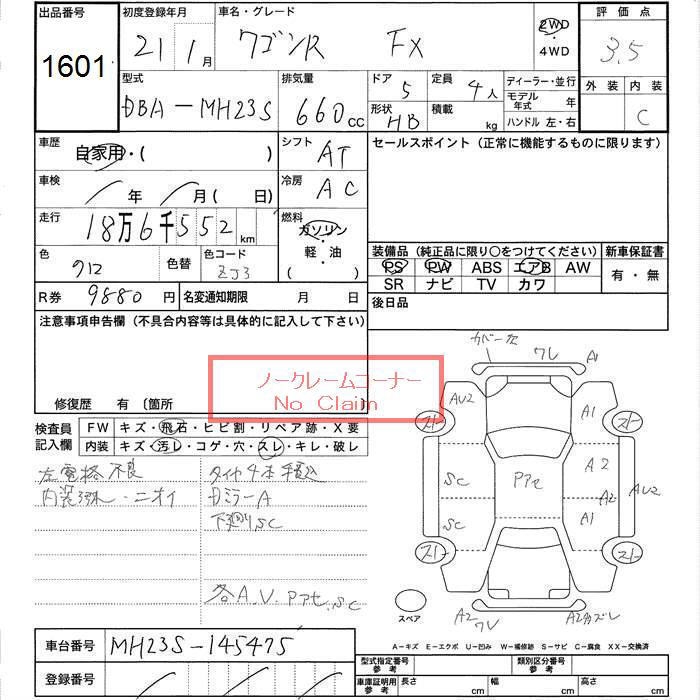 出品番号 初度登録年月 車名・グレード 2WD ・ 4WD 評価点
1601 21年 1月 ワゴンR FX 3.5
外装 内装
C
型式 排気量 ドア 定員 ディーラー・並行
DBA-MH23S 660cc 5 4人 モデル年式 年
形状 HB 積載 kg ハンドル 左・右
車歴 自家用・( ) シフト AT セールスポイント (正常に機能するものに限ります)
車検 年 月( 日) 冷房 AC
走行 18万6千552km 燃料 ガソリン・軽・油 ( )
装備品 (純正品に限り〇をつけてください) 新車保証書
色 クロ 色替 色コード ZJ3 PS PW ABS エアB AW 有・無
SR ナビ TV カワ
R券 9880円 名変通知期限 月 日 後日品
注意事項申告欄 (不具合内容等は具体的に記入して下さい)
ノークレームコーナー
No Claim
修復歴 有 〔箇所
カバー欠 ワレ A1
検査員記入欄 FW キズ・飛石・ヒビ割・リペア跡・X要
内装 キズ・汚レ・コゲ・穴・スレ・キレ・破レ
左電格不良 タイヤ4本
内装汚れ・ニオイ Dミラー A
下廻りSC
各A.V.Pアセ.SC
AU2 A1
スレ スレ
SC Pアセ A2
A2 AU2
SC A1
スレ スレ
スペア A2 ワレ A2カズレ
A-キズ E-エクボ U-凹み W-補修跡 S-サビ C-腐食 XX-交換済
車台番号 MH23S-145475
登録番号
型式指定番号 参考 類別区分番号 参考
車庫証明用 参考 長さ cm 幅 cm 高さ cm